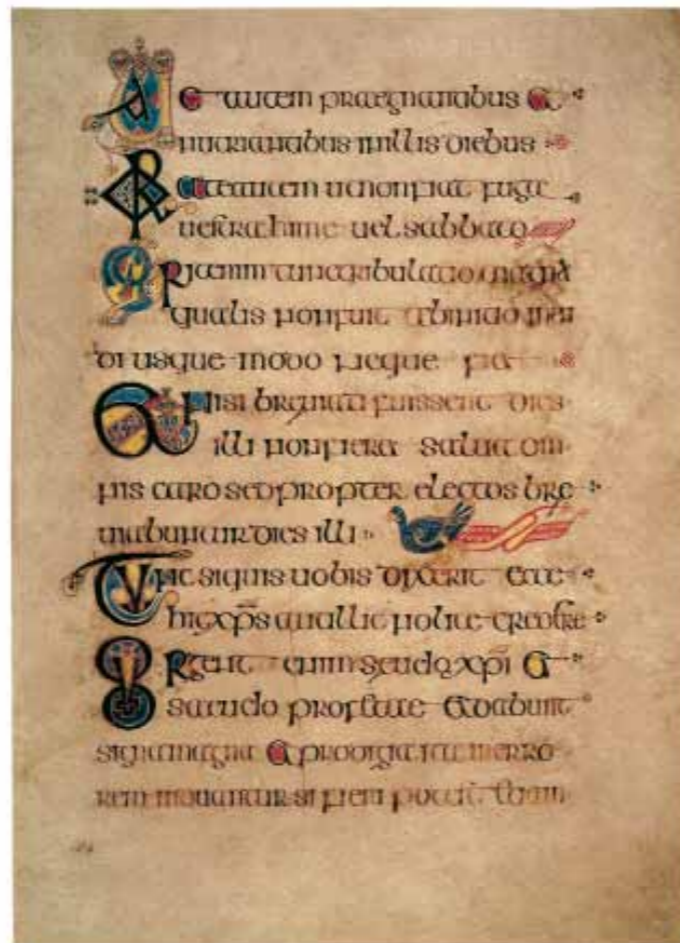 Uae autem praegnantibus et
nutrientibus in illis diebus
Orate autem ut non fiat fuga
uestra hime uel sabbato
Erit enim tunc tribulatio magna
qualis non fuit ab initio mun
di usque modo neque fiet
Et nisi breuiati fuissent dies
illi non fieret salua om
nis caro sed propter electos bre
uiabuntur dies illi
Tunc si quis uobis dixerit ecce
hic xps aut illic nolite credere
Surgent enim seudo xpi et
seudo profetae et dabunt
signa magna et prodigia ita ut in erro
rem inducantur si fieri potest etiam